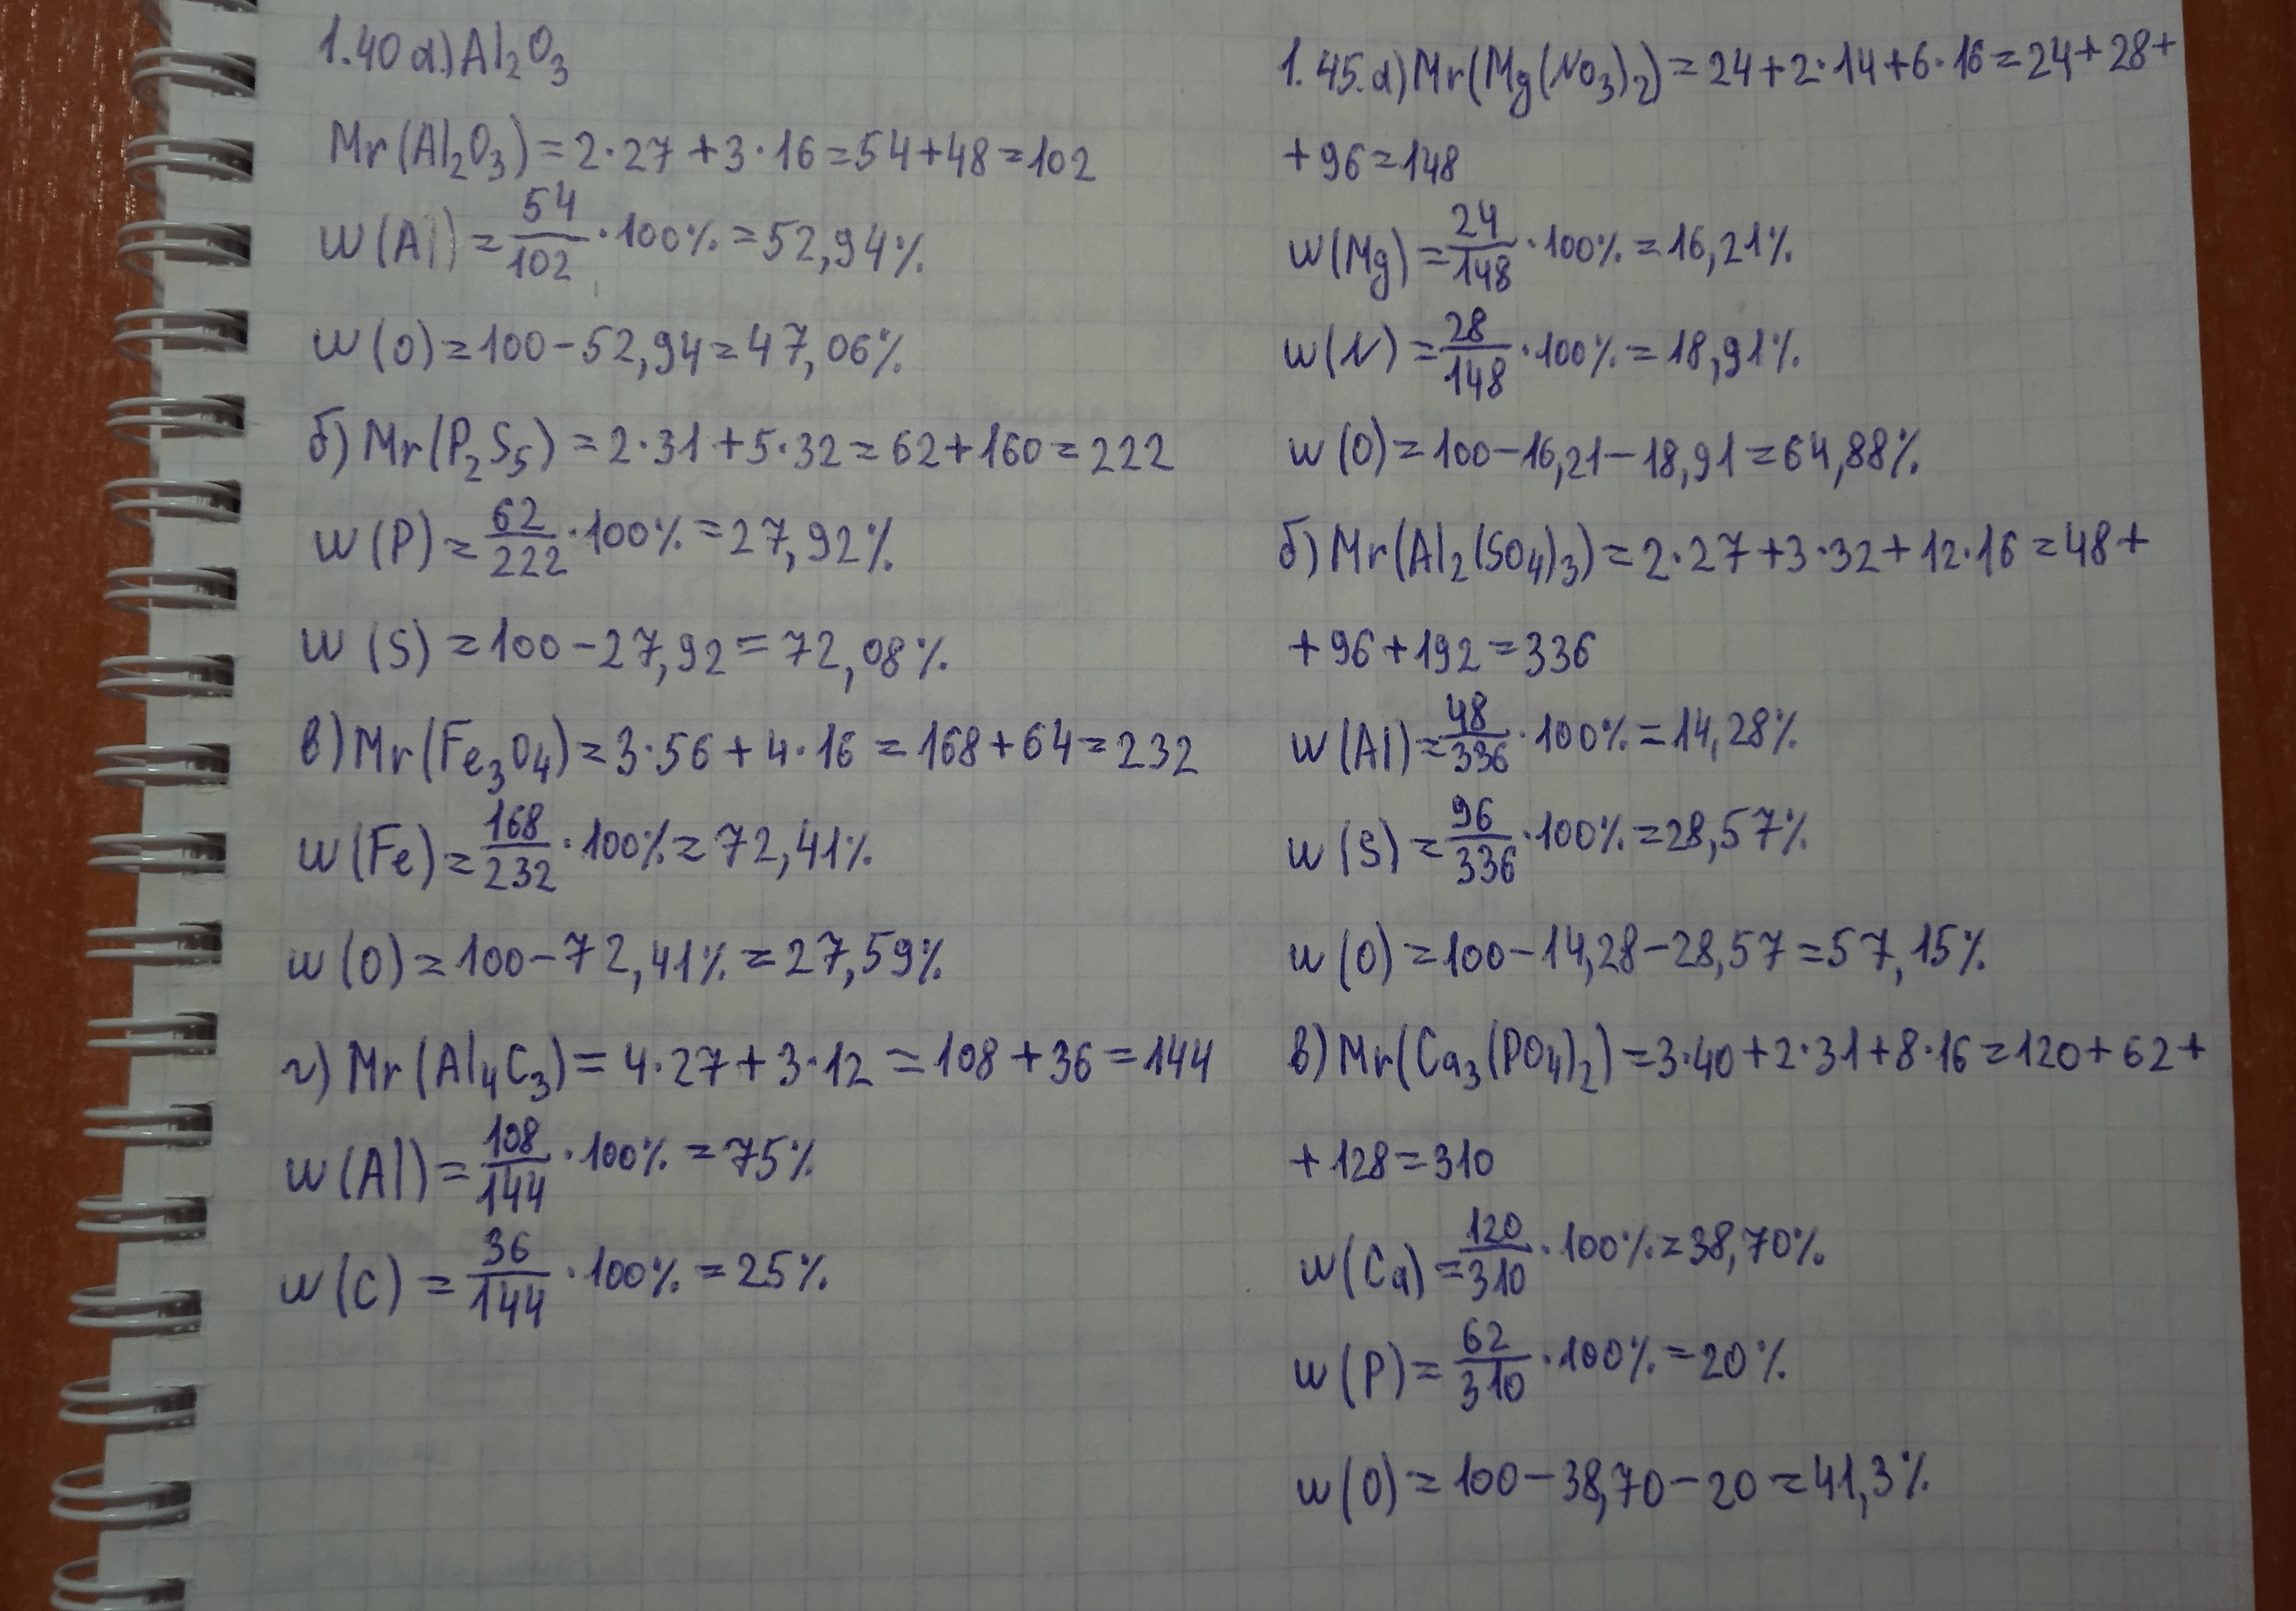 1.40 а) Al₂O₃
Mr(Al₂O₃)=2·27+3·16=54+48=102
w(Al)=54/102·100%=52,94%
w(O)=100-52,94=47,06%
б) Mr(P₂S₅)=2·31+5·32=62+160=222
w(P)=62/222·100%=27,92%
w(S)=100-27,92=72,08%
в) Mr(Fe₃O₄)=3·56+4·16=168+64=232
w(Fe)=168/232·100%=72,41%
w(O)=100-72,41%=27,59%
г) Mr(Al₄C₃)=4·27+3·12=108+36=144
w(Al)=108/144·100%=75%
w(C)=36/144·100%=25%
1.45. а) Mr(Mg(NO₃)₂)=24+2·14+6·16=24+28+
+96=148
w(Mg)=24/148·100%=16,21%
w(N)=28/148·100%=18,91%
w(O)=100-16,21-18,91=64,88%
б) Mr(Al₂(SO₄)₃)=2·27+3·32+12·16=48+
+96+192=336
w(Al)=48/336·100%=14,28%
w(S)=96/336·100%=28,57%
w(O)=100-14,28-28,57=57,15%
в) Mr(Ca₃(PO₄)₂)=3·40+2·31+8·16=120+62+
+128=310
w(Ca)=120/310·100%=38,70%
w(P)=62/310·100%=20%
w(O)=100-38,70-20=41,3%